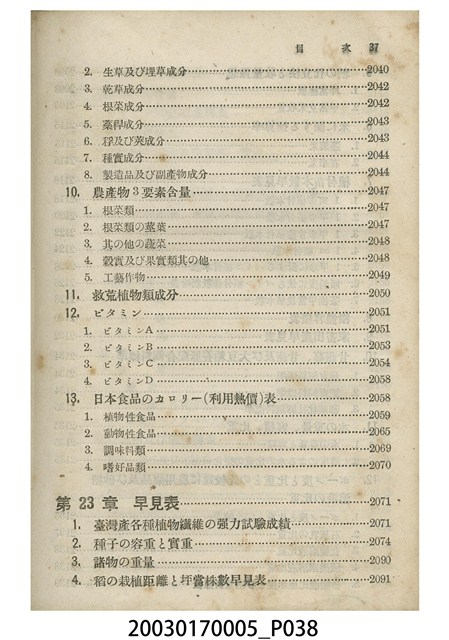 目次 37
2. 生草及び埋草成分 2040
3. 乾草成分 2042
4. 根菜成分 2042
5. 藁稈成分 2043
6. 稃及び莢成分 2044
7. 種實成分 2044
8. 製造品及び副產物成分 2044
10. 農產物3要素含量 2047
1. 根菜類 2047
2. 根菜類の莖葉 2047
3. 其の他の蔬菜 2048
4. 穀實及び果實類其の他 2048
5. 工藝作物 2049
11. 救荒植物類成分 2050
12. ビタミン 2051
1. ビタミンA 2051
2. ビタミンB 2053
3. ビタミンC 2054
4. ビタミンD 2058
13. 日本食品のカロリー(利用熱價)表 2058
1. 植物性食品 2059
2. 動物性食品 2065
3. 調味料類 2069
4. 嗜好品類 2070
第23章 早見表 2071
1. 臺灣產各種植物纖維の强力試驗成績 2071
2. 種子の容重と實重 2074
3. 諸物の重量 2090
4. 稻の栽植距離と坪當株數早見表 2091
20030170005_P038